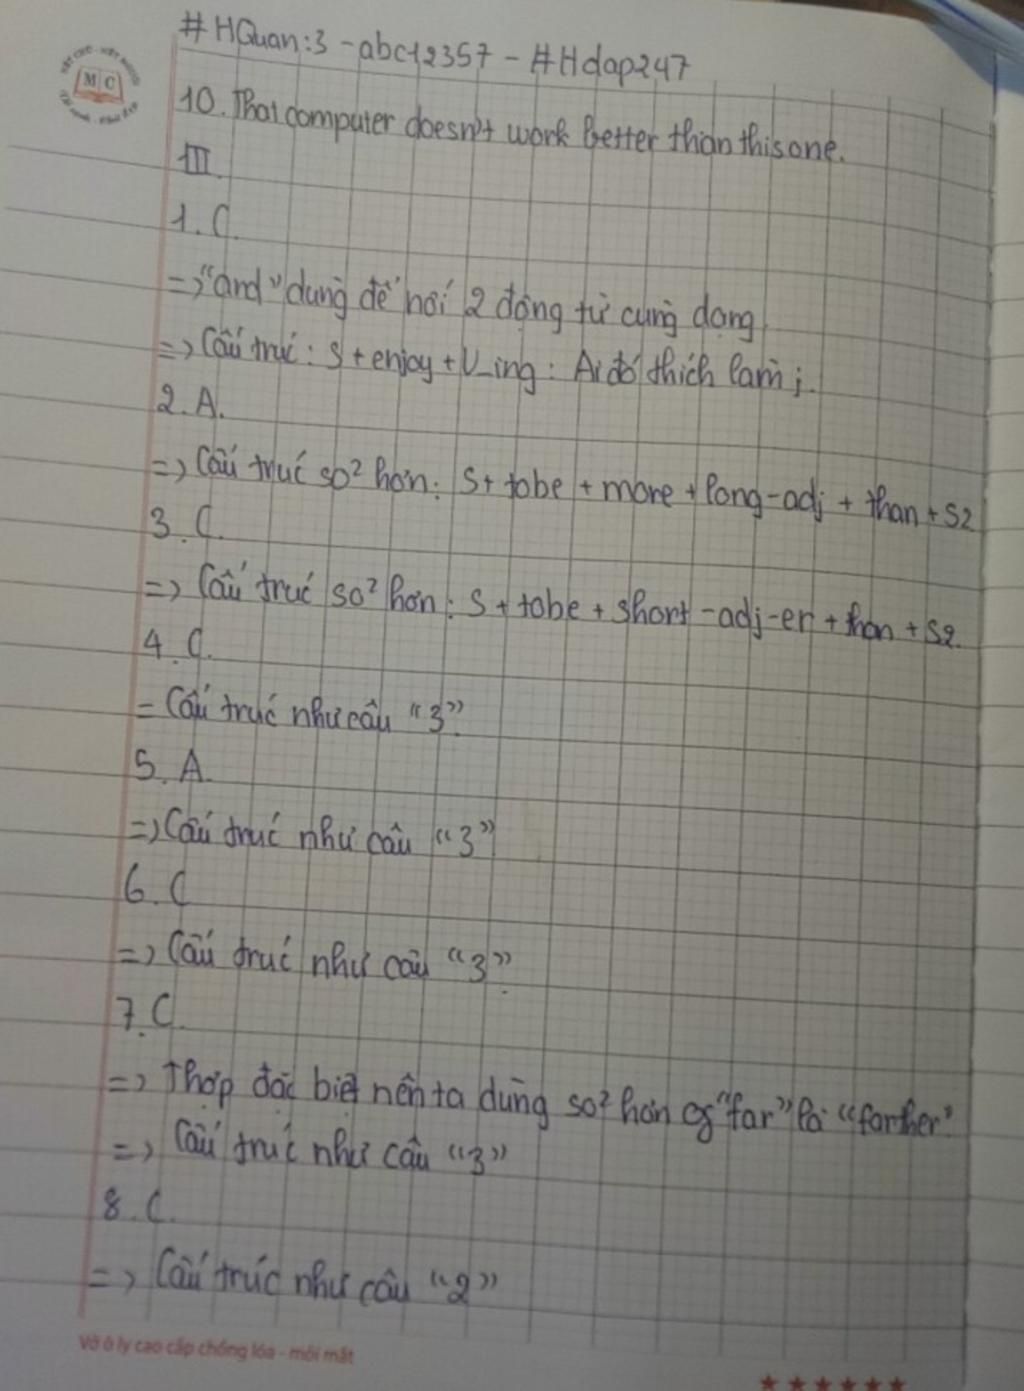 #HQuan:3 - abc12357 - #Hdap247
M C
10. That computer doesn't work better than this one.
III
1. C.
=> "and" dùng để nối 2 động từ cùng dạng
=> Cấu trúc: S + enjoy + V_ing: Ai đó thích làm j.
2. A.
=> Cấu trúc so² hơn: S + tobe + more + long-adj + than + S2
3. C.
=> Cấu trúc so² hơn: S + tobe + short-adj-er + than + S2.
4. C.
= Cấu trúc như câu "3".
5. A.
=> Cấu trúc như câu "3"
6. C
=> Cấu trúc như câu "3".
7. C
=> Thợp đặc biệt nên ta dùng so² hơn of "far" là "farther".
=> Cấu trúc như câu "3"
8. C.
=> Cấu trúc như câu "2"
Vở ô ly cao cấp chống lóa - mỏi mắt